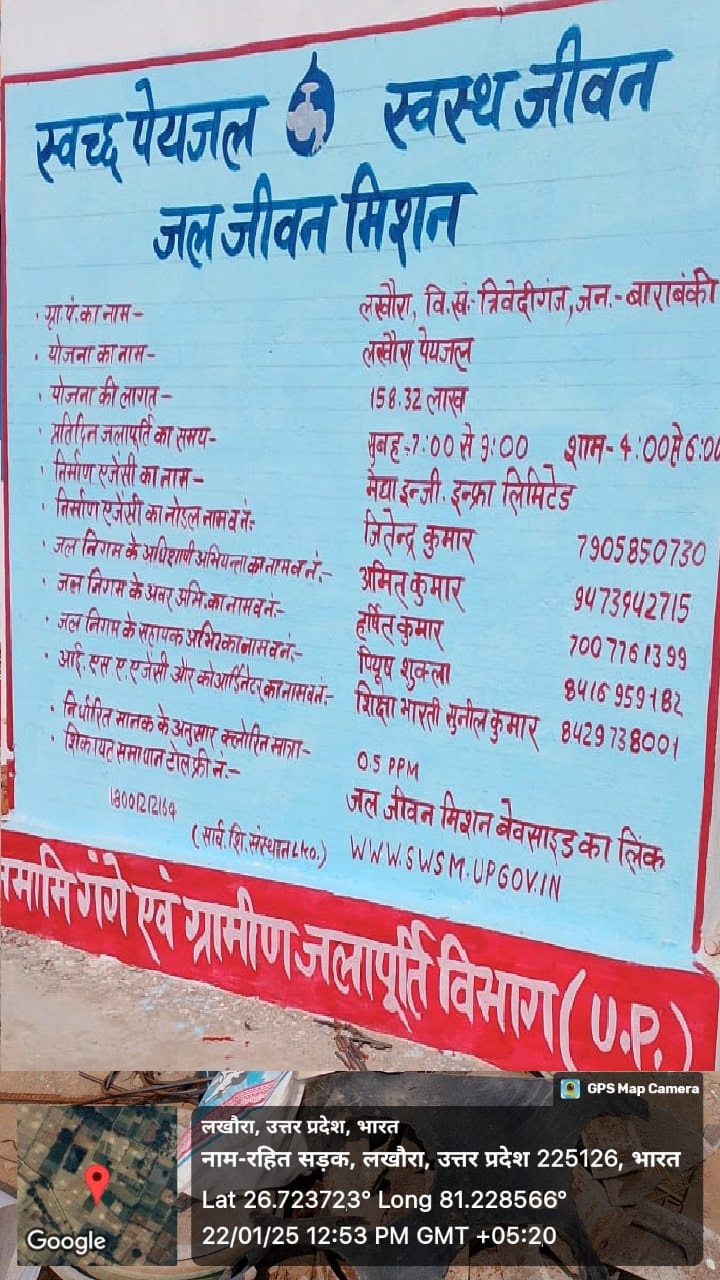 स्वच्छ पेयजल स्वस्थ जीवन
जल जीवन मिशन
· ग्रा.पं.का नाम- लखौरा, वि.ख.- त्रिवेदीगंज, जन.- बाराबंकी
· योजना का नाम- लखौरा पेयजल
· योजना की लागत- 158.32 लाख
· प्रतिदिन जलापूर्ति का समय- सुबह-7:00 से 9:00 शाम-4:00 से 6:00
· निर्माण एजेंसी का नाम- मेघा इन्जी. इन्फ्रा लिमिटेड
· निर्माण एजेंसी का नोडल नाम व नं:- जितेन्द्र कुमार 7905850730
· जल निगम के अधिशाषी अभियन्ता का नाम व नं:- अमित कुमार 9473942715
· जल निगम के अवर अभि.का नाम व नं:- हर्षित कुमार 7007761399
· जल निगम के सहायक अभि. का नाम व नं:- पियूष शुक्ला 8416959182
· आई. एस ए. एजेंसी और कोआर्डिनेटर का नाम व नं:- शिक्षा भारती सुनील कुमार 8429738001
· निर्धारित मानक के अनुसार क्लोरिन मात्रा- 0.5 PPM
· शिकायट समाधान टोल फ्री नं.:- जल जीवन मिशन बेवसाइड का लिंक
18001212164
(सार्व. शि. संस्थान Lko.) WWW.SWSM.UPGOV.IN
नमामि गंगे एवं ग्रामीण जलापूर्ति विभाग (U.P.)
GPS Map Camera
लखौरा, उत्तर प्रदेश, भारत
नाम-रहित सड़क, लखौरा, उत्तर प्रदेश 225126, भारत
Lat 26.723723° Long 81.228566°
22/01/25 12:53 PM GMT +05:20
Google